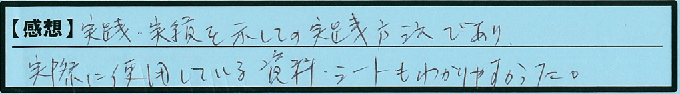 【感想】実践・実績を示しての実践方法であり
実際に使用している資料・シートもわかりやすかった。